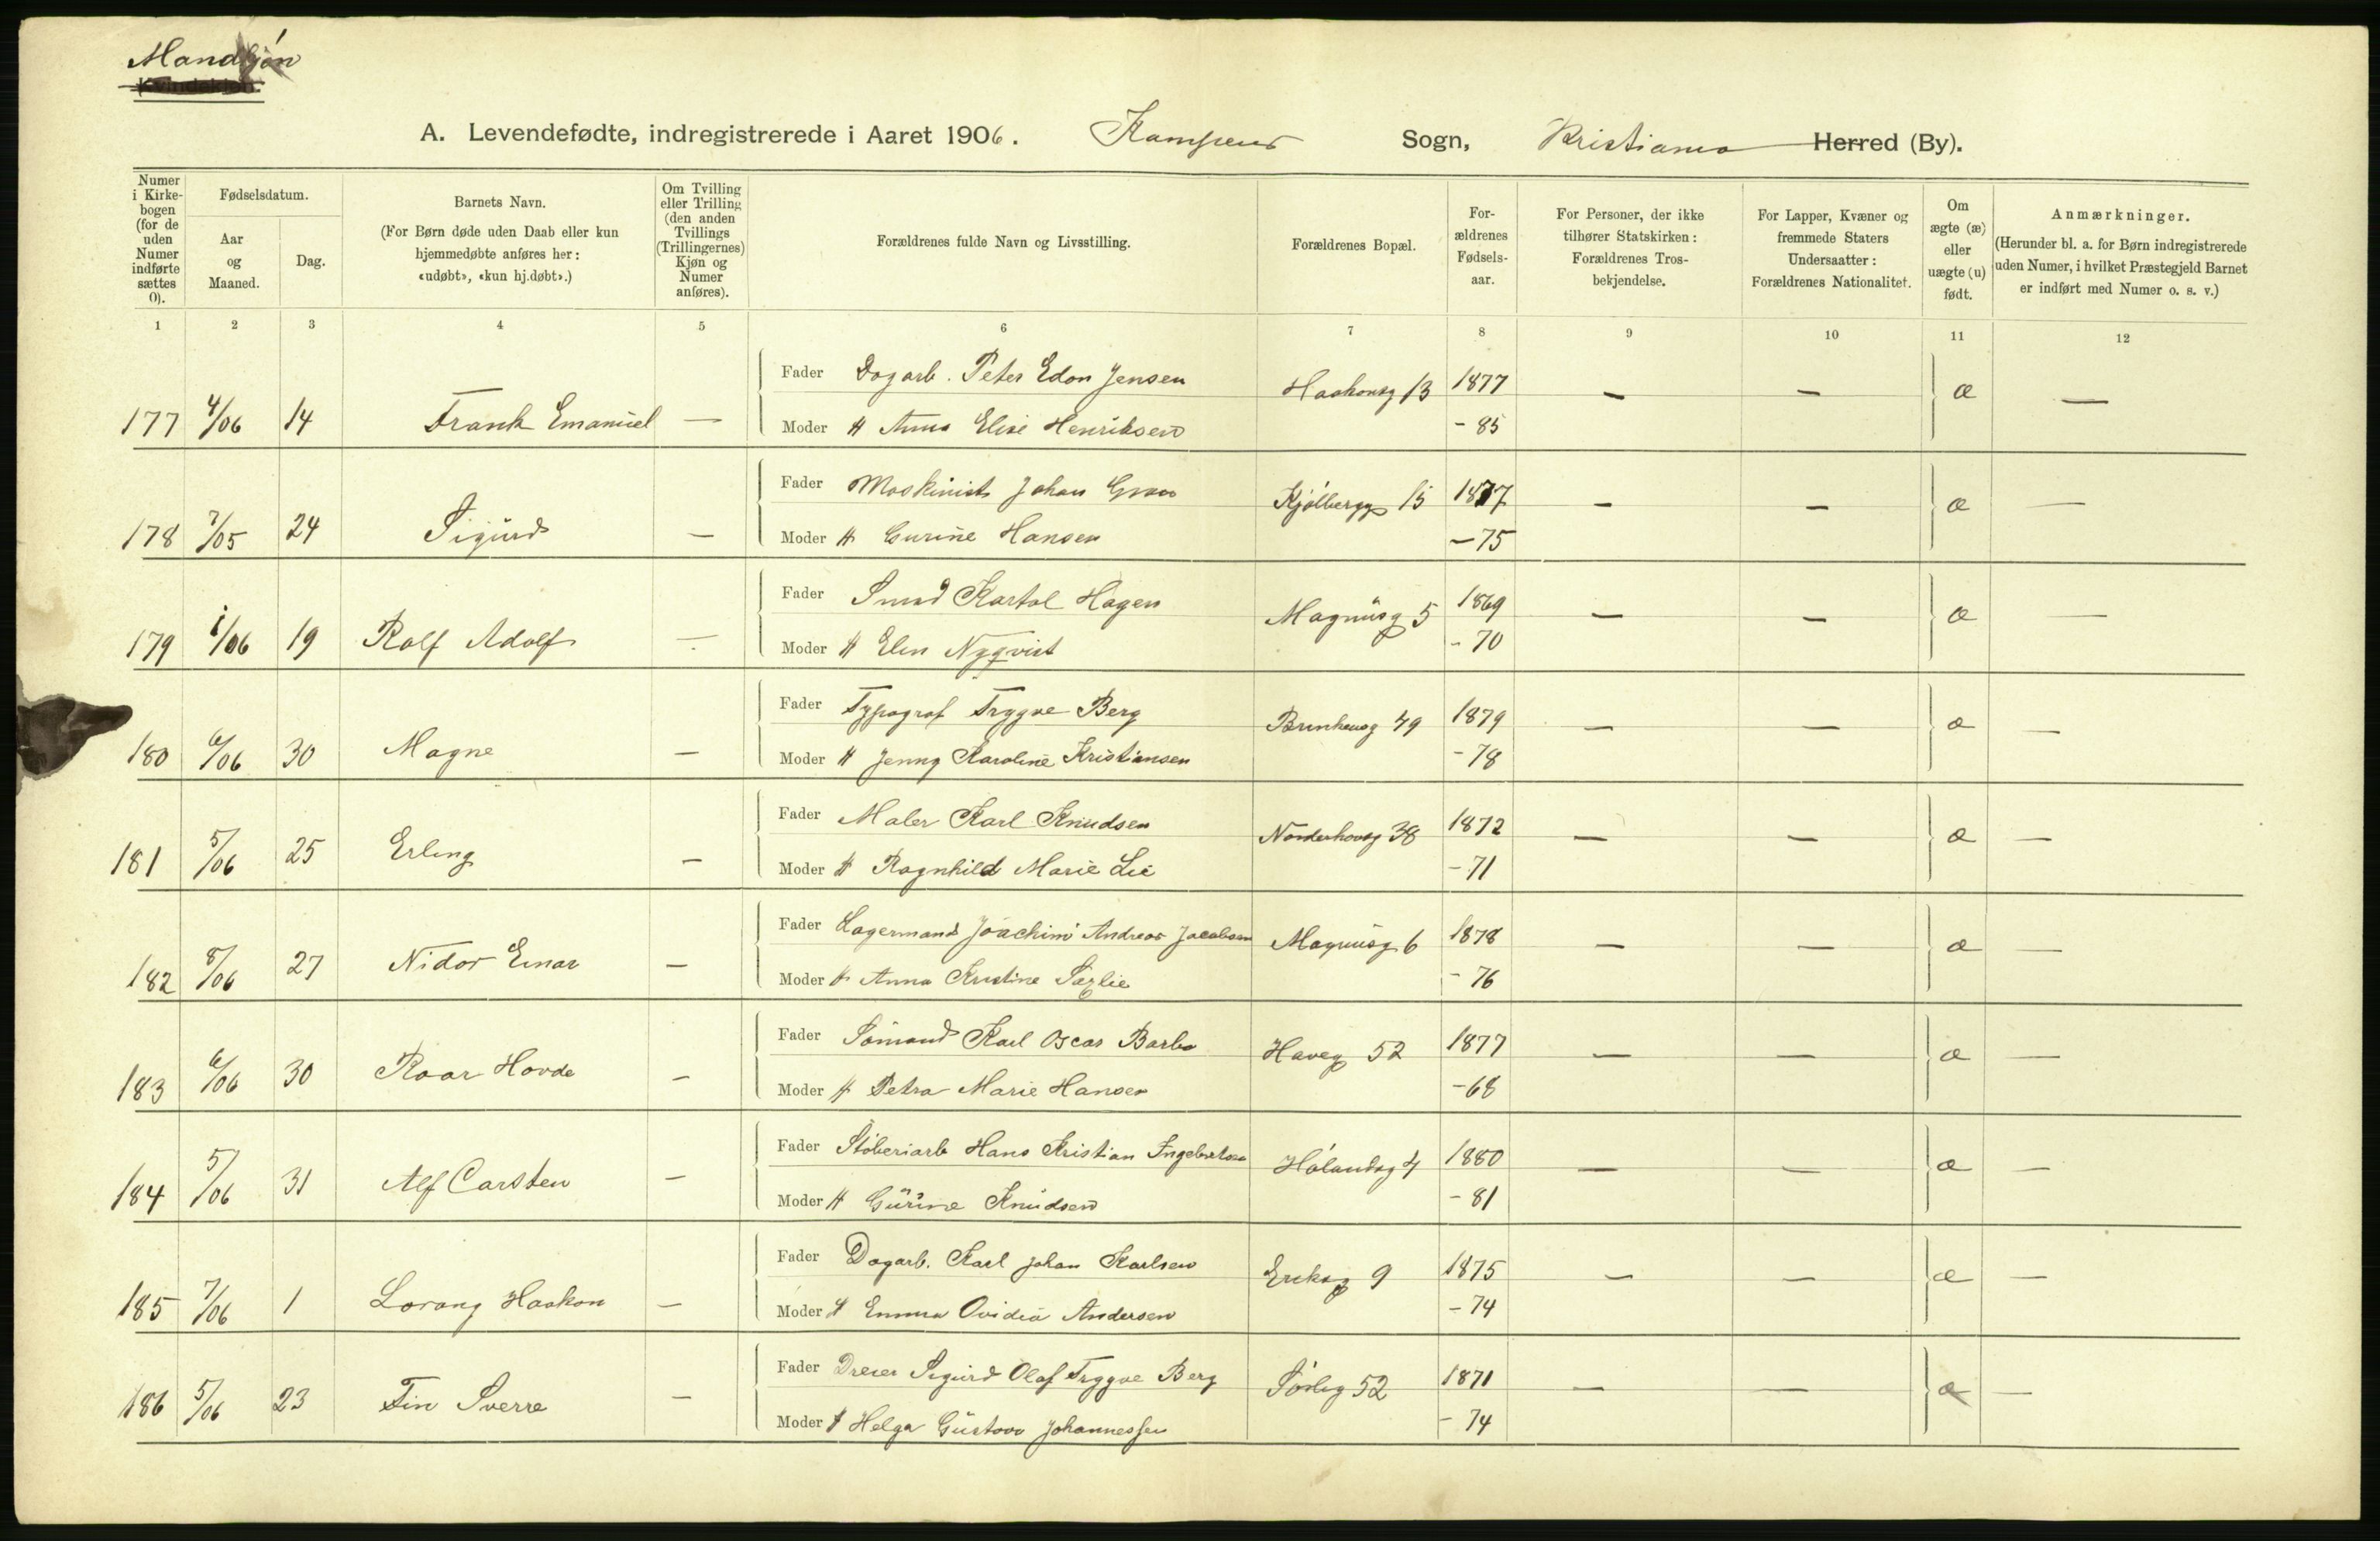 Mandkjøn
Kvindekjøn.
A. Levendefødte, indregistrerede i Aaret 1906. Kampens Sogn, Kristiania Herred (By).
Numer i Kirkebogen (for de uden Numer indførte sættes 0).
Fødselsdatum.
Aar og Maaned.
Dag.
Barnets Navn.
(For Børn døde uden Daab eller kun hjemmedøbte anføres her: «udøbt», «kun hj.døbt».)
Om Tvilling eller Trilling (den anden Tvillings (Trillingernes) Kjøn og Numer anføres).
Forældrenes fulde Navn og Livsstilling.
Forældrenes Bopæl.
Forældrenes Fødselsaar.
For Personer, der ikke tilhører Statskirken: Forældrenes Trosbekjendelse.
For Lapper, Kvæner og fremmede Staters Undersaatter: Forældrenes Nationalitet.
Om ægte (æ) eller uægte (u) født.
Anmærkninger.
(Herunder bl. a. for Børn indregistrerede uden Numer, i hvilket Præstegjeld Barnet er indført med Numer o. s. v.)
1 2 3 4 5 6 7 8 9 10 11 12
Fader Dagarb. Peter Edon Jensen Haakonsg 13 1877 — — æ —
177 4/06 14 Frank Emanuel — Moder H Anna Elise Henriksen - 85
Fader Maskinist Johan Gran Kjølbergg 15 1877 — — æ —
178 7/05 24 Sigurd — Moder H Gurine Hansen - 75
Fader Smed Kartol Hagen Magnusg 5 1869 — — æ —
179 1/06 19 Rolf Adolf — Moder H Elen Nyqvist - 70
Fader Typograf Trygve Berg Brinkensg 49 1879 — — æ —
180 6/06 30 Magne — Moder H Jenny Karoline Kristiansen - 78
Fader Maler Karl Knudsen Norderhovsg 38 1872 — — æ —
181 5/06 25 Erling — Moder H Ragnhild Marie Lie - 71
Fader Lagermand Joachim Andreas Jacobsen Magnusg 6 1878 — — æ —
182 8/06 27 Nidor Einar — Moder H Anna Kristine - 76
Fader Sømand Karl Oscar Barbo Haveg 52 1877 — — æ —
183 6/06 30 Roar Hovde — Moder H Petra Marie Hansen - 68
Fader Støberiarb Hans Kristian Ingebretsen Hølandsg 4 1880 — — æ —
184 5/06 31 Alf Carsten — Moder H Gurine Knudsen - 81
Fader Dagarb. Karl Johan Karlsen Eriksg 9 1875 — — æ —
185 7/06 1 Lorang Haakon — Moder H Emma Ovidia Andersen - 74
Fader Dreier Sigurd Olaf Trygve Berg Sørlig 52 1871 — — æ —
186 5/06 23 Fin Sverre — Moder H Helga Gustava Johannessen - 74